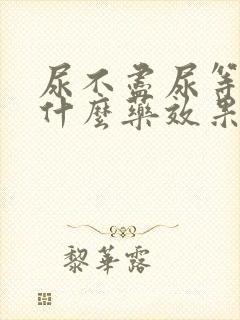 尿不盡尿等
什麼藥效果
黎華露